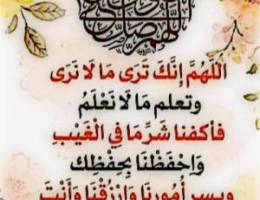 اللهم صل
اللهُمَّ إِنَّكَ تَرَى مَا لَا نَرَى
وتعلم مَا لَا نَعْلَمُ
فأكفنا شرَّ مَا فِي الْغَيْبِ
وَاحفَظْنَا بِحِفْظِكَ
ويسر أمُورنَا وَارْزُقْنَا وَأَنْتَ